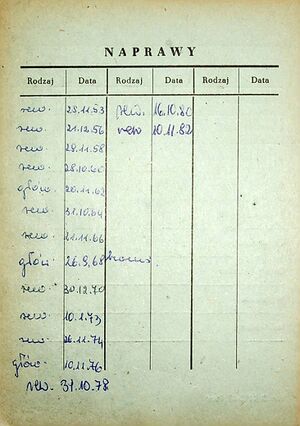 NAPRAWY
Rodzaj Data Rodzaj Data Rodzaj Data
rew. 23.11.53 rew. 16.10.80
rew. 21.12.56 rew 10.11.82
rew. 29.11.58
rew. 28.10.60
głów. 20.11.62
rew. 31.10.64
rew. 21.11.66
głów. 26.9.68
rew. 30.12.70
rew. 10.1.73
rew. 26.11.74
głów. 10.11.76
rew. 31.10.78